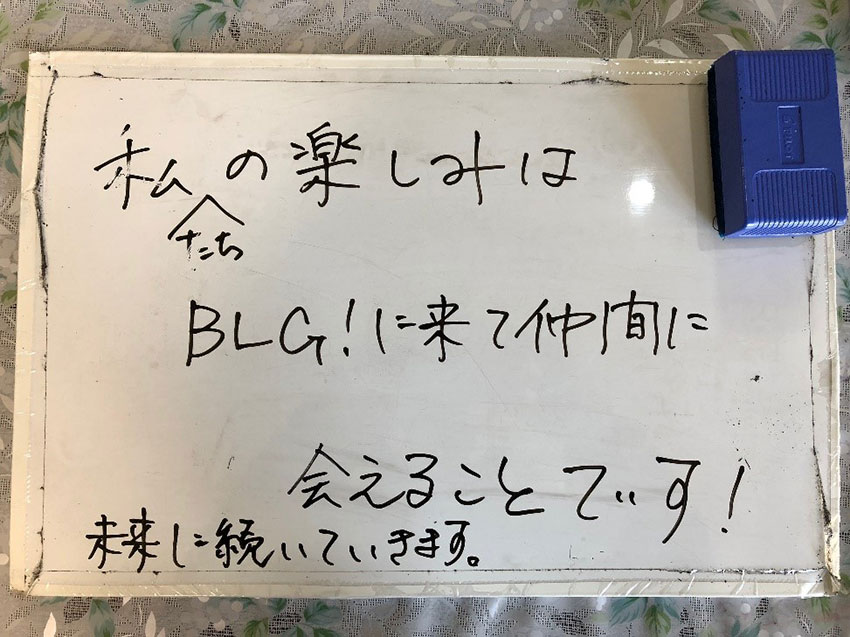 私たちの楽しみは
BLG!に来て仲間に
会えることです!
未来に続いていきます。